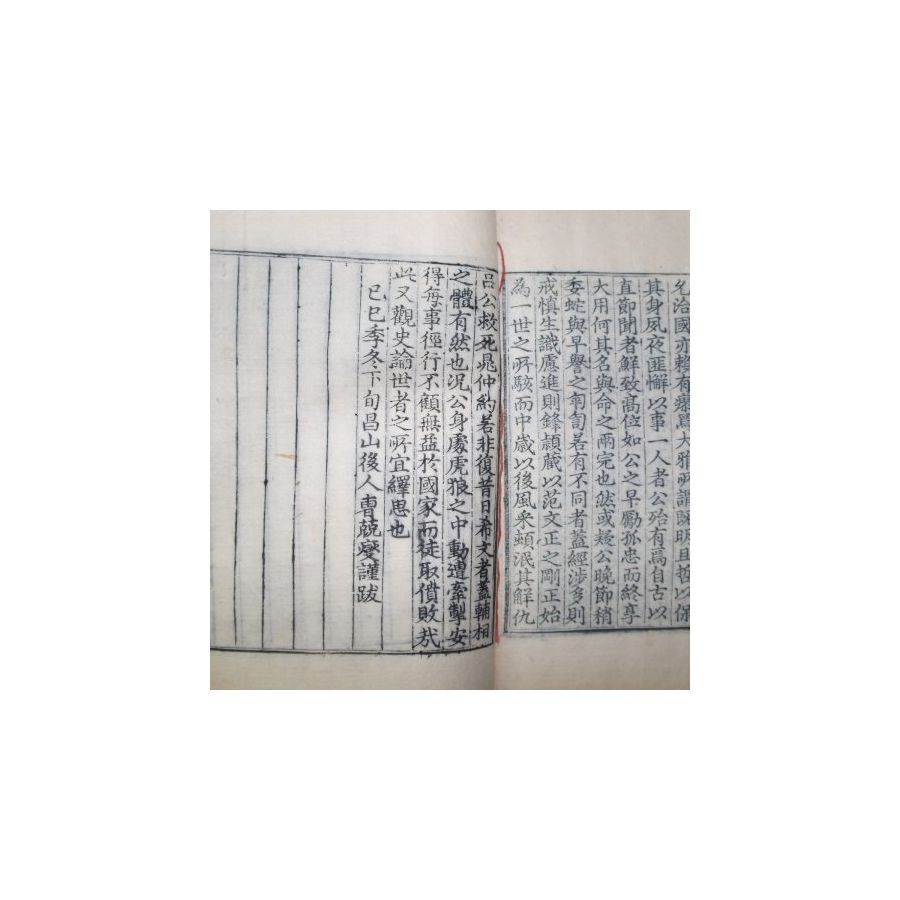 治國亦賴有聚焉大雅所謂旣明且哲以保
其身夙夜匪懈以事一人者公殆有焉自古以
直節聞者鮮致高位如公之早勵孤忠而終享
大用何其名與命之兩完也然或疑公晚節稍
委蛇與早譽之訇訇若有不同者蓋經涉多則
戒慎生識慮進則鋒穎蔵以范文正之剛正始
為一世之所駭而中歲以後風采頓泯其解仇
呂公救死晁仲約若非復昔日希文者蓋輔相
之體有然也况公身處虎狼之中動遭牽掣安
得每事徑行不顧無益於國家而徒取僨敗㢤
此又觀史論世者之所宜繹思也
己巳季冬下旬昌山後人曺兢燮謹跋